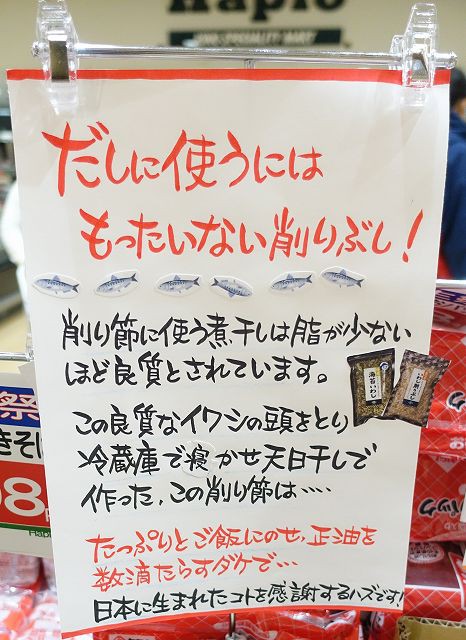 だしに使うには
もったいない削りぶし！
削り節に使う煮干しは脂が少ない
ほど良質とされています。
海苔いわし
この良質なイワシの頭をとり
冷蔵庫で寝かせ天日干しで
作った、この削り節は‥‥
たっぷりとご飯にのせ、正油を
数滴たらすダケで…
日本に生まれたコトを感謝するハズです!
祭
きそば
98
パック